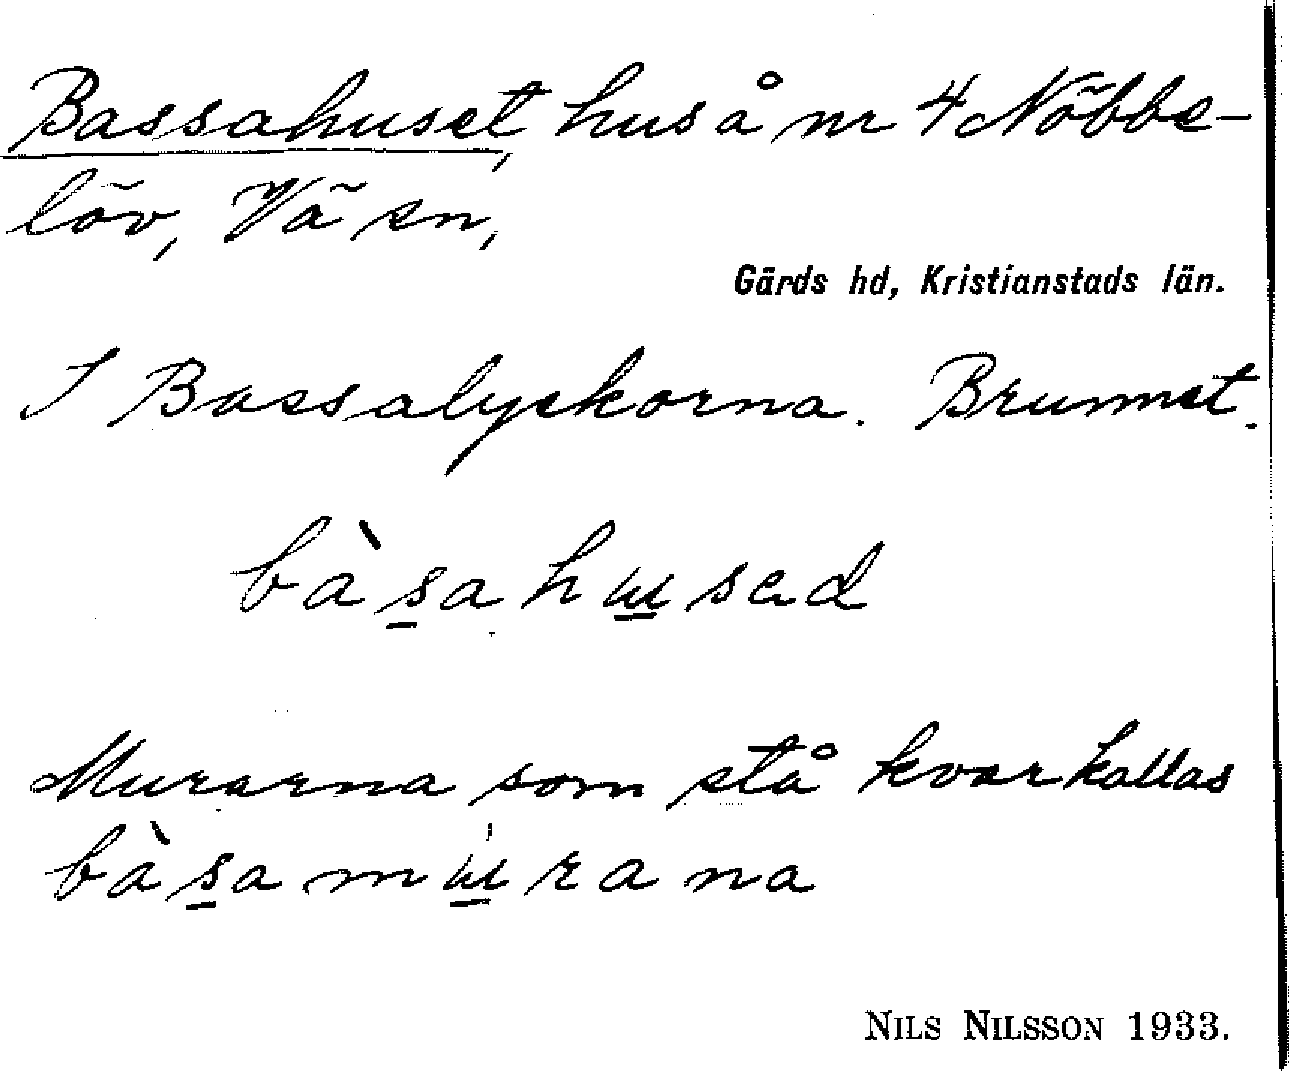 Bassahuset, hus å nr 4 Nöbbe-
löv, Vä sn,
Gärds hd, Kristianstads län.
I Bassalyckorna. Brunnet.
bàsahɯsed
Murarna som stå kvar kallas
bàsamɯrana
NILS NILSSON 1933.